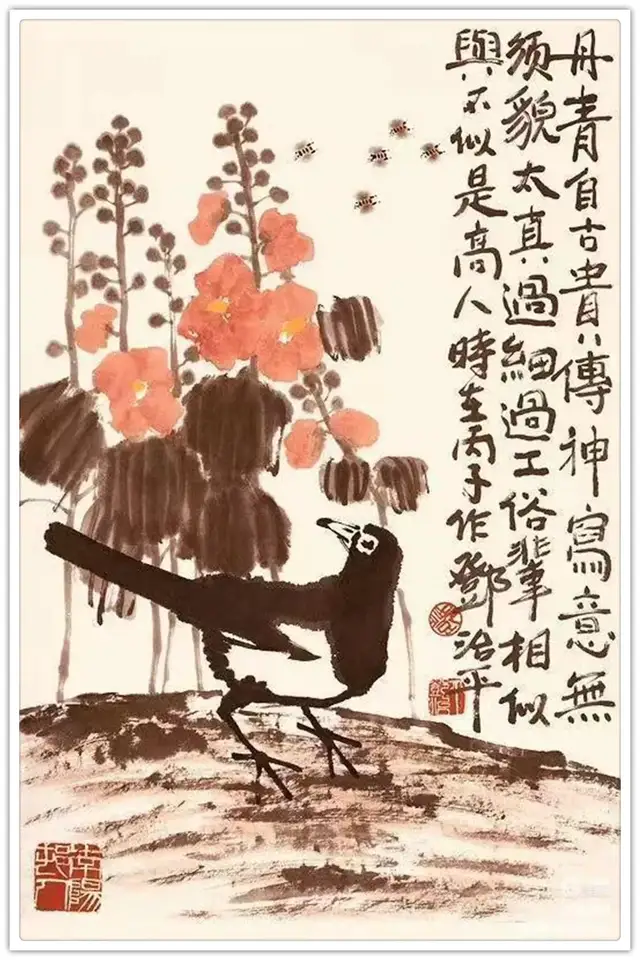 丹青自古貴傳神寫意無
須貌太真過細過工俗輩相似
與不似是高人時在丙子作鄧治平